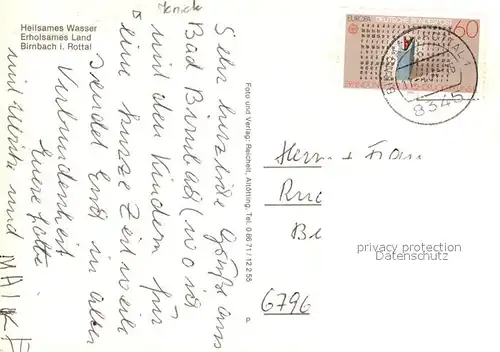 Heilsames Wasser
Erholsames Land
Birnbach i. Rottal
Sehr herzliche Grüße aus
Bad Birnbach (wo ich
mit den Kindern für
eine kurze Zeit weile
sendet Euch in alter
Verbundenheit
Eure Lotte
und
MAIK
Foto und Verlag: Reichelt, Altötting, Tel. 0 86 71 / 12 2 55
EUROPA DEUTSCHE BUNDESPOST
60
8345
Herrn + Frau
6796
privacy protection
watermark